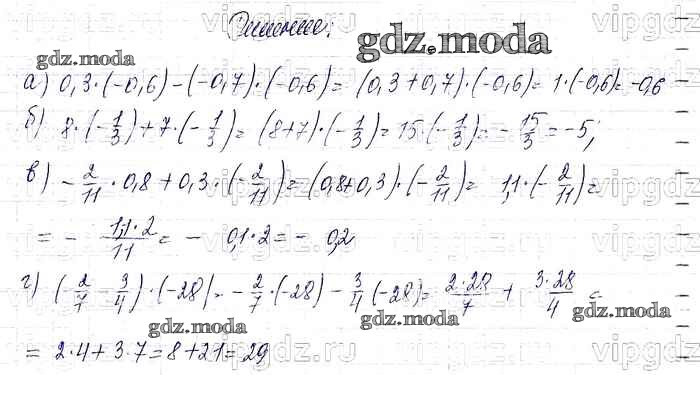 Решение:
gdz.moda
gdz.moda
а) 0,3·(-0,6)-(-0,7)·(-0,6)= (0,3+0,7)·(-0,6)= 1·(-0,6)= -0,6
б) 8·(-1/3)+7·(-1/3)= (8+7)·(-1/3)= 15·(-1/3)= -15/3 = -5;
в) -2/11·0,8+0,3·(-2/11)= (0,8+0,3)·(-2/11)= 1,1·(-2/11)=
= - 1,1·2/11 = - 0,1·2= - 0,2
г) (-2/7 - 3/4)·(-28)= -2/7·(-28) - 3/4 (-28)= 2·28/7 + 3·28/4 =
gdz.moda
gdz.moda
gdz.moda
= 2·4+3·7=8+21=29
vipgdz.ru